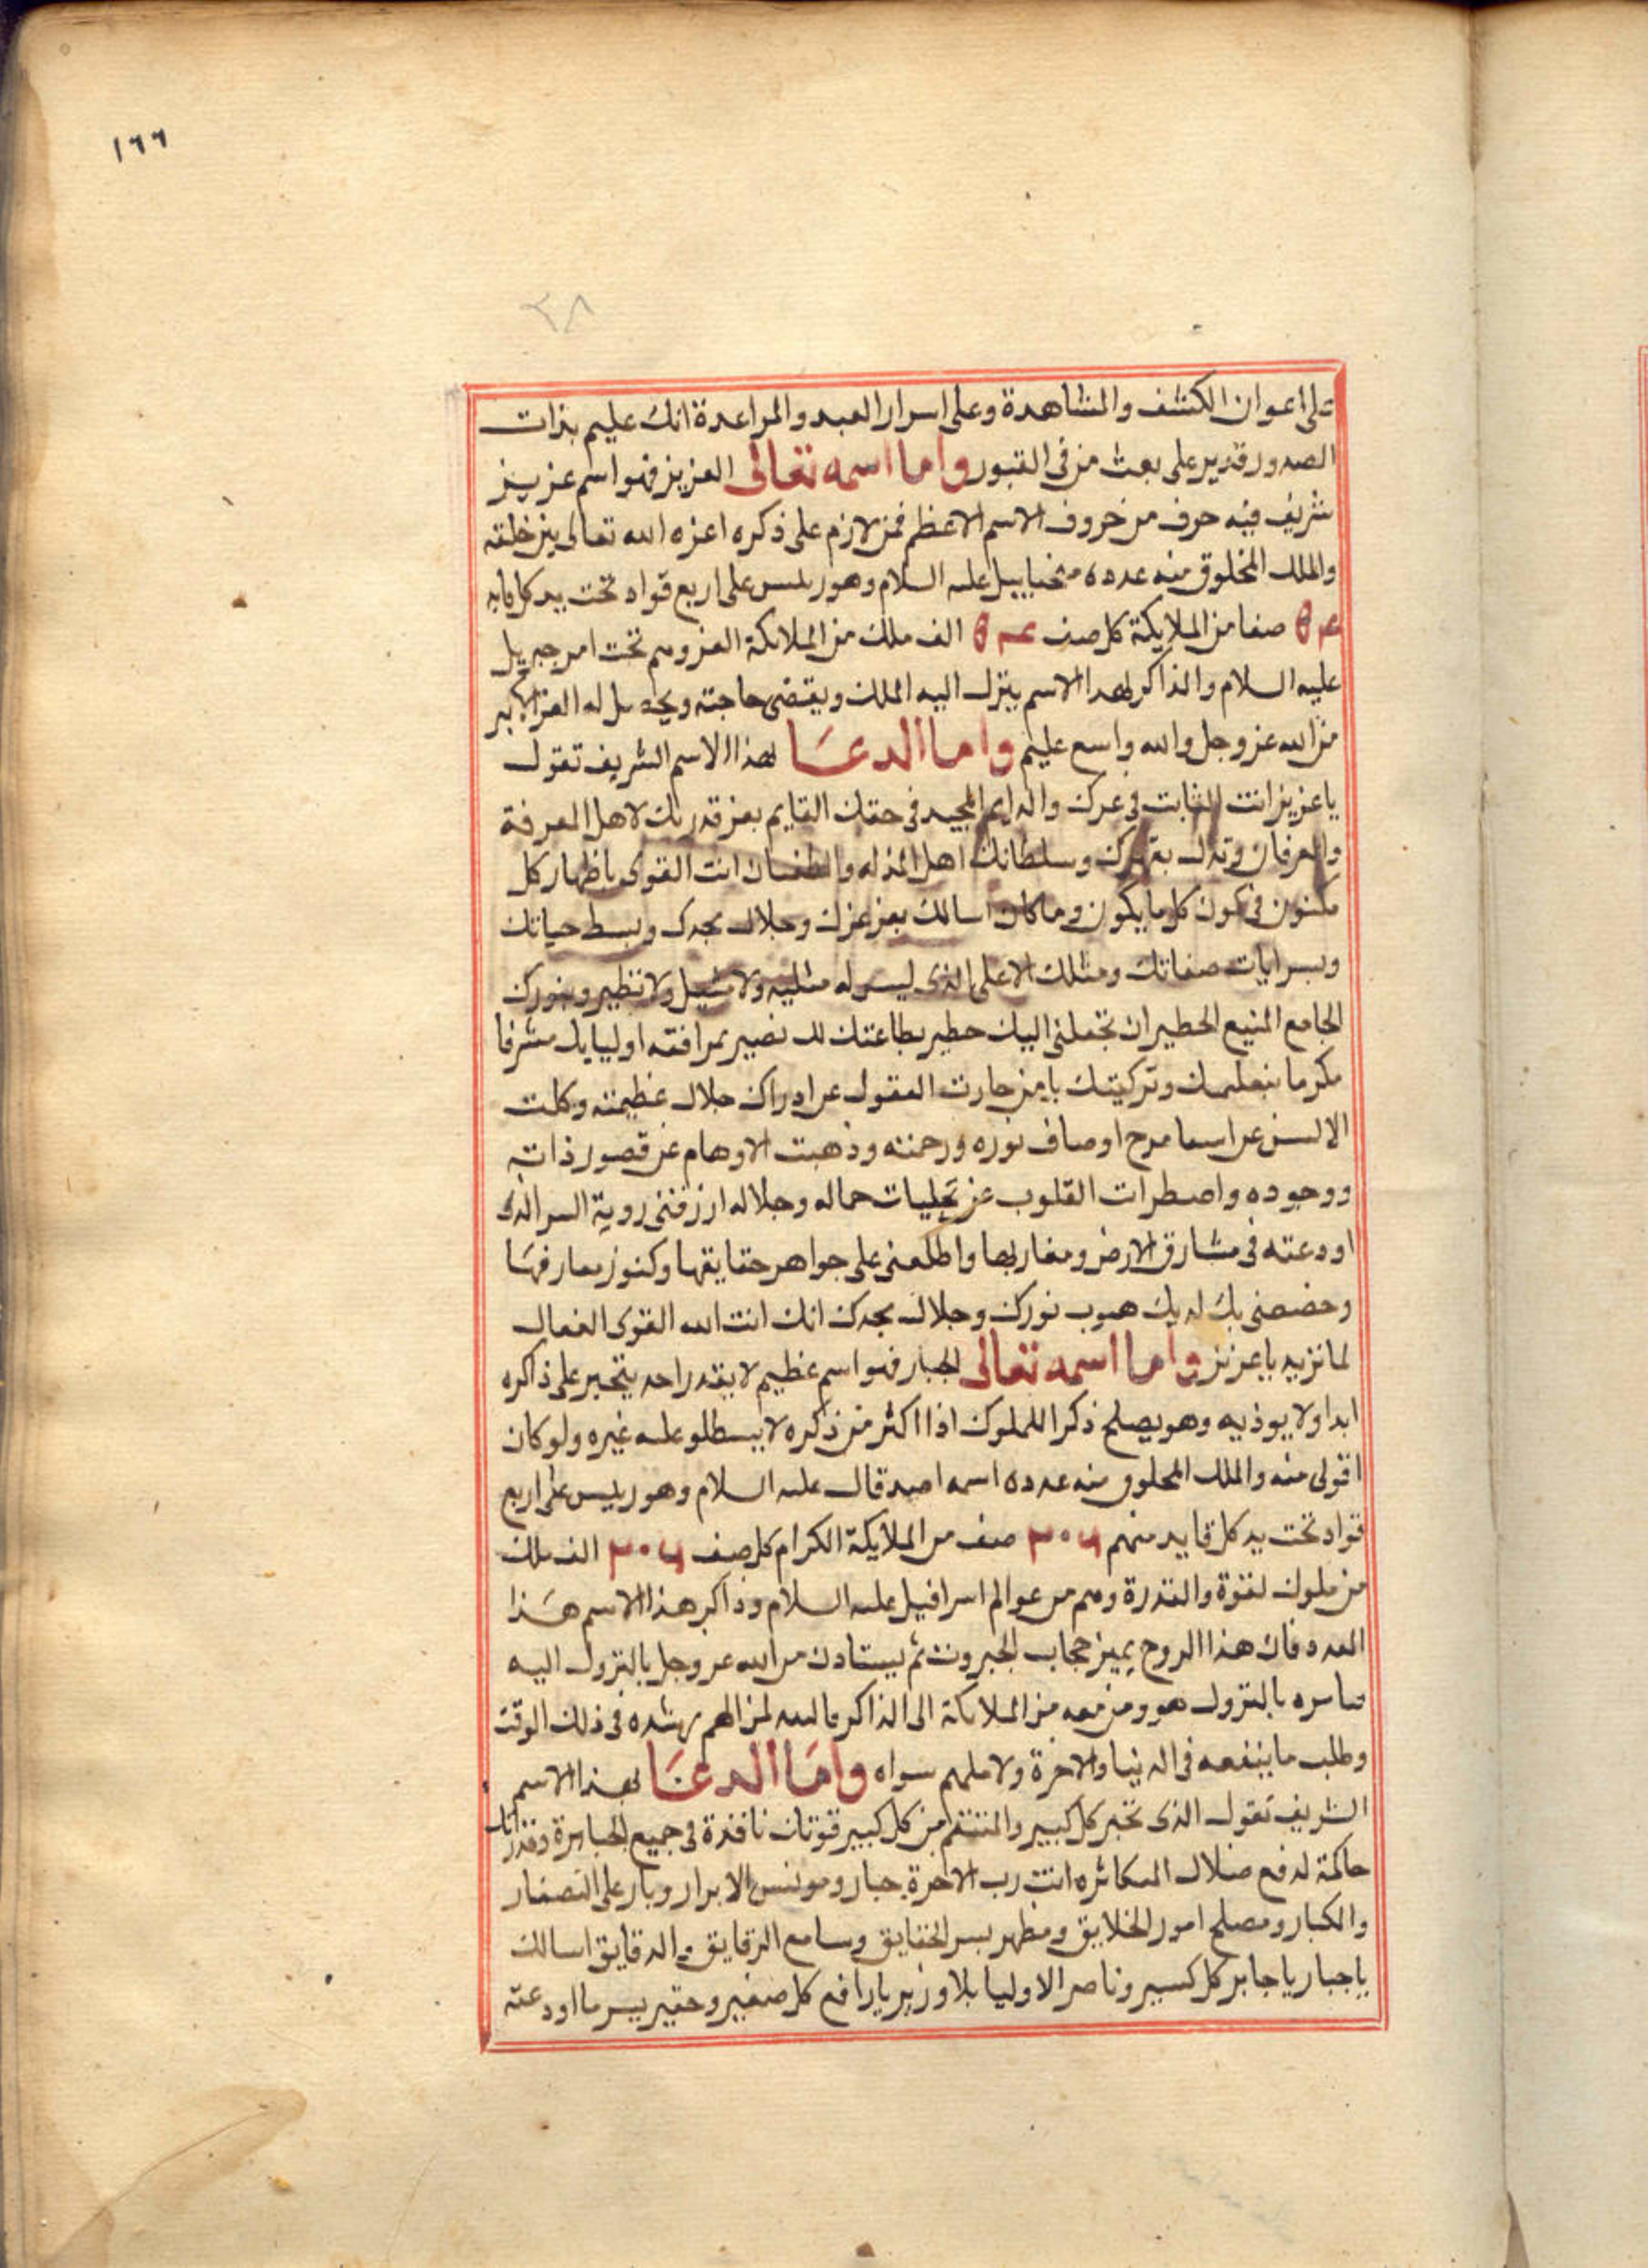 ١٦٦
٢٨
على اعوان الكشف والمشاهدة وعلى اسرار العبد والمراعدة انك عليم بذات
الصدور قدير على بعث من فى القبور واما اسمه تعالى العزيز فهو اسم عزيز
شريف فيه حرف من حروف الاسم الاعظم فمن لازم على ذكره اعزه الله تعالى بين خلقه
والملك المخلوق منه عدده عليه السلام وهو ريس على اربع قواد تحت يد كل قايد
صفا من الملايكة كل صف الف ملك من الملايكة العز وهم تحت امر جبريل
عليه السلام والذاكر لهذا الاسم ينزل اليه الملك ويقضى حاجته ويحصل له العز الاكبر
من الله عز وجل والله واسع عليم واما الدعا لهذا الاسم الشريف تقول
يا عزيز انت الثابت فى عزك والدايم المجيد فى حقك القايم بعز قدرتك لاهل المعرفة
والعرفان وتذل بقهرك وسلطانك اهل المذله والطغيان انت القوى باظهار كل
مكنون فى كون كل ما يكون وما كان اسالك بعز عزك وجلال مجدك وبسط حياتك
وبسر ايات صفاتك ومثلك الاعلى الذى ليس له مثليه ولا مثيل ولا نظير وبنورك
الجامع المنيع الخطير ان تجعلنى اليك خطير بطاعتك لك نصير بمرافقه اوليايك مشرفا
مكرما بتعليمك وتزكيتك يا من حارت العقول عن ادراك جلال عظيمته وكلت
الالسن عن اسما مدح اوصاف نوره ورحمته وذهبت الاوهام عن قصور ذاته
ووجوده واضطرات القلوب عن تجليات جماله وجلاله ارزقنى روية السر الذى
اودعته فى مشارق الارض ومغاربها واطلعنى على جواهر حقايقها وكنوز معارفها
وخصصنى بك لديك هبوب نورك وجلال مجدك انك انت الله القوى الفعال
لما تريد يا عزيز واما اسمه تعالى الجبار فهو اسم عظيم لا يقدر احد يتجبر على ذاكره
ابدا ولا يوذيه وهو يصلح ذكرا للملوك اذا اكثر من ذكره لا يسطلو عليه غيره ولو كان
اقوى منه والملك المخلوق منه عدده اسمه عليه السلام وهو رييس على اربع
قواد تحت يد كل قايد منهم ٢٠٦ صف من الملايكة الكرام كل صف ٢٠٦ الف ملك
من ملوك لقوة والقدرة وهم من عوالم اسرافيل عليه السلام وذاكر هذا الاسم هذا
العدد فان هذا الروح يميز حجاب الجبروت ثم يستاذن من الله عز وجل بالنزول اليه
فيامره بالنزول هو ومن معه من الملايكة الى الذاكر لمن الهم رشده فى ذلك الوقت
وطلب ما ينفعه فى الدنيا والاخرة ولا سواه واما الدعا لهذا الاسم
الشريف تقول الذى تجبر كل كبير والمنتقم من كل كبير قوتك نافذة فى جميع الجبابرة وقدرتك
حاكمة لدفع ضلال المكاثره انت رب الاخرة جبار ومونس الابرار وبار على الصغار
والكبار ومصلح امور الخلايق ومظهر بسر الحقايق وسامع الرقايق والدقايق اسالك
يا جبار يا جابر كل كسير وناصر الاوليا بلا وزير يا رافع كل صغير وحقير بسر ما اودعته